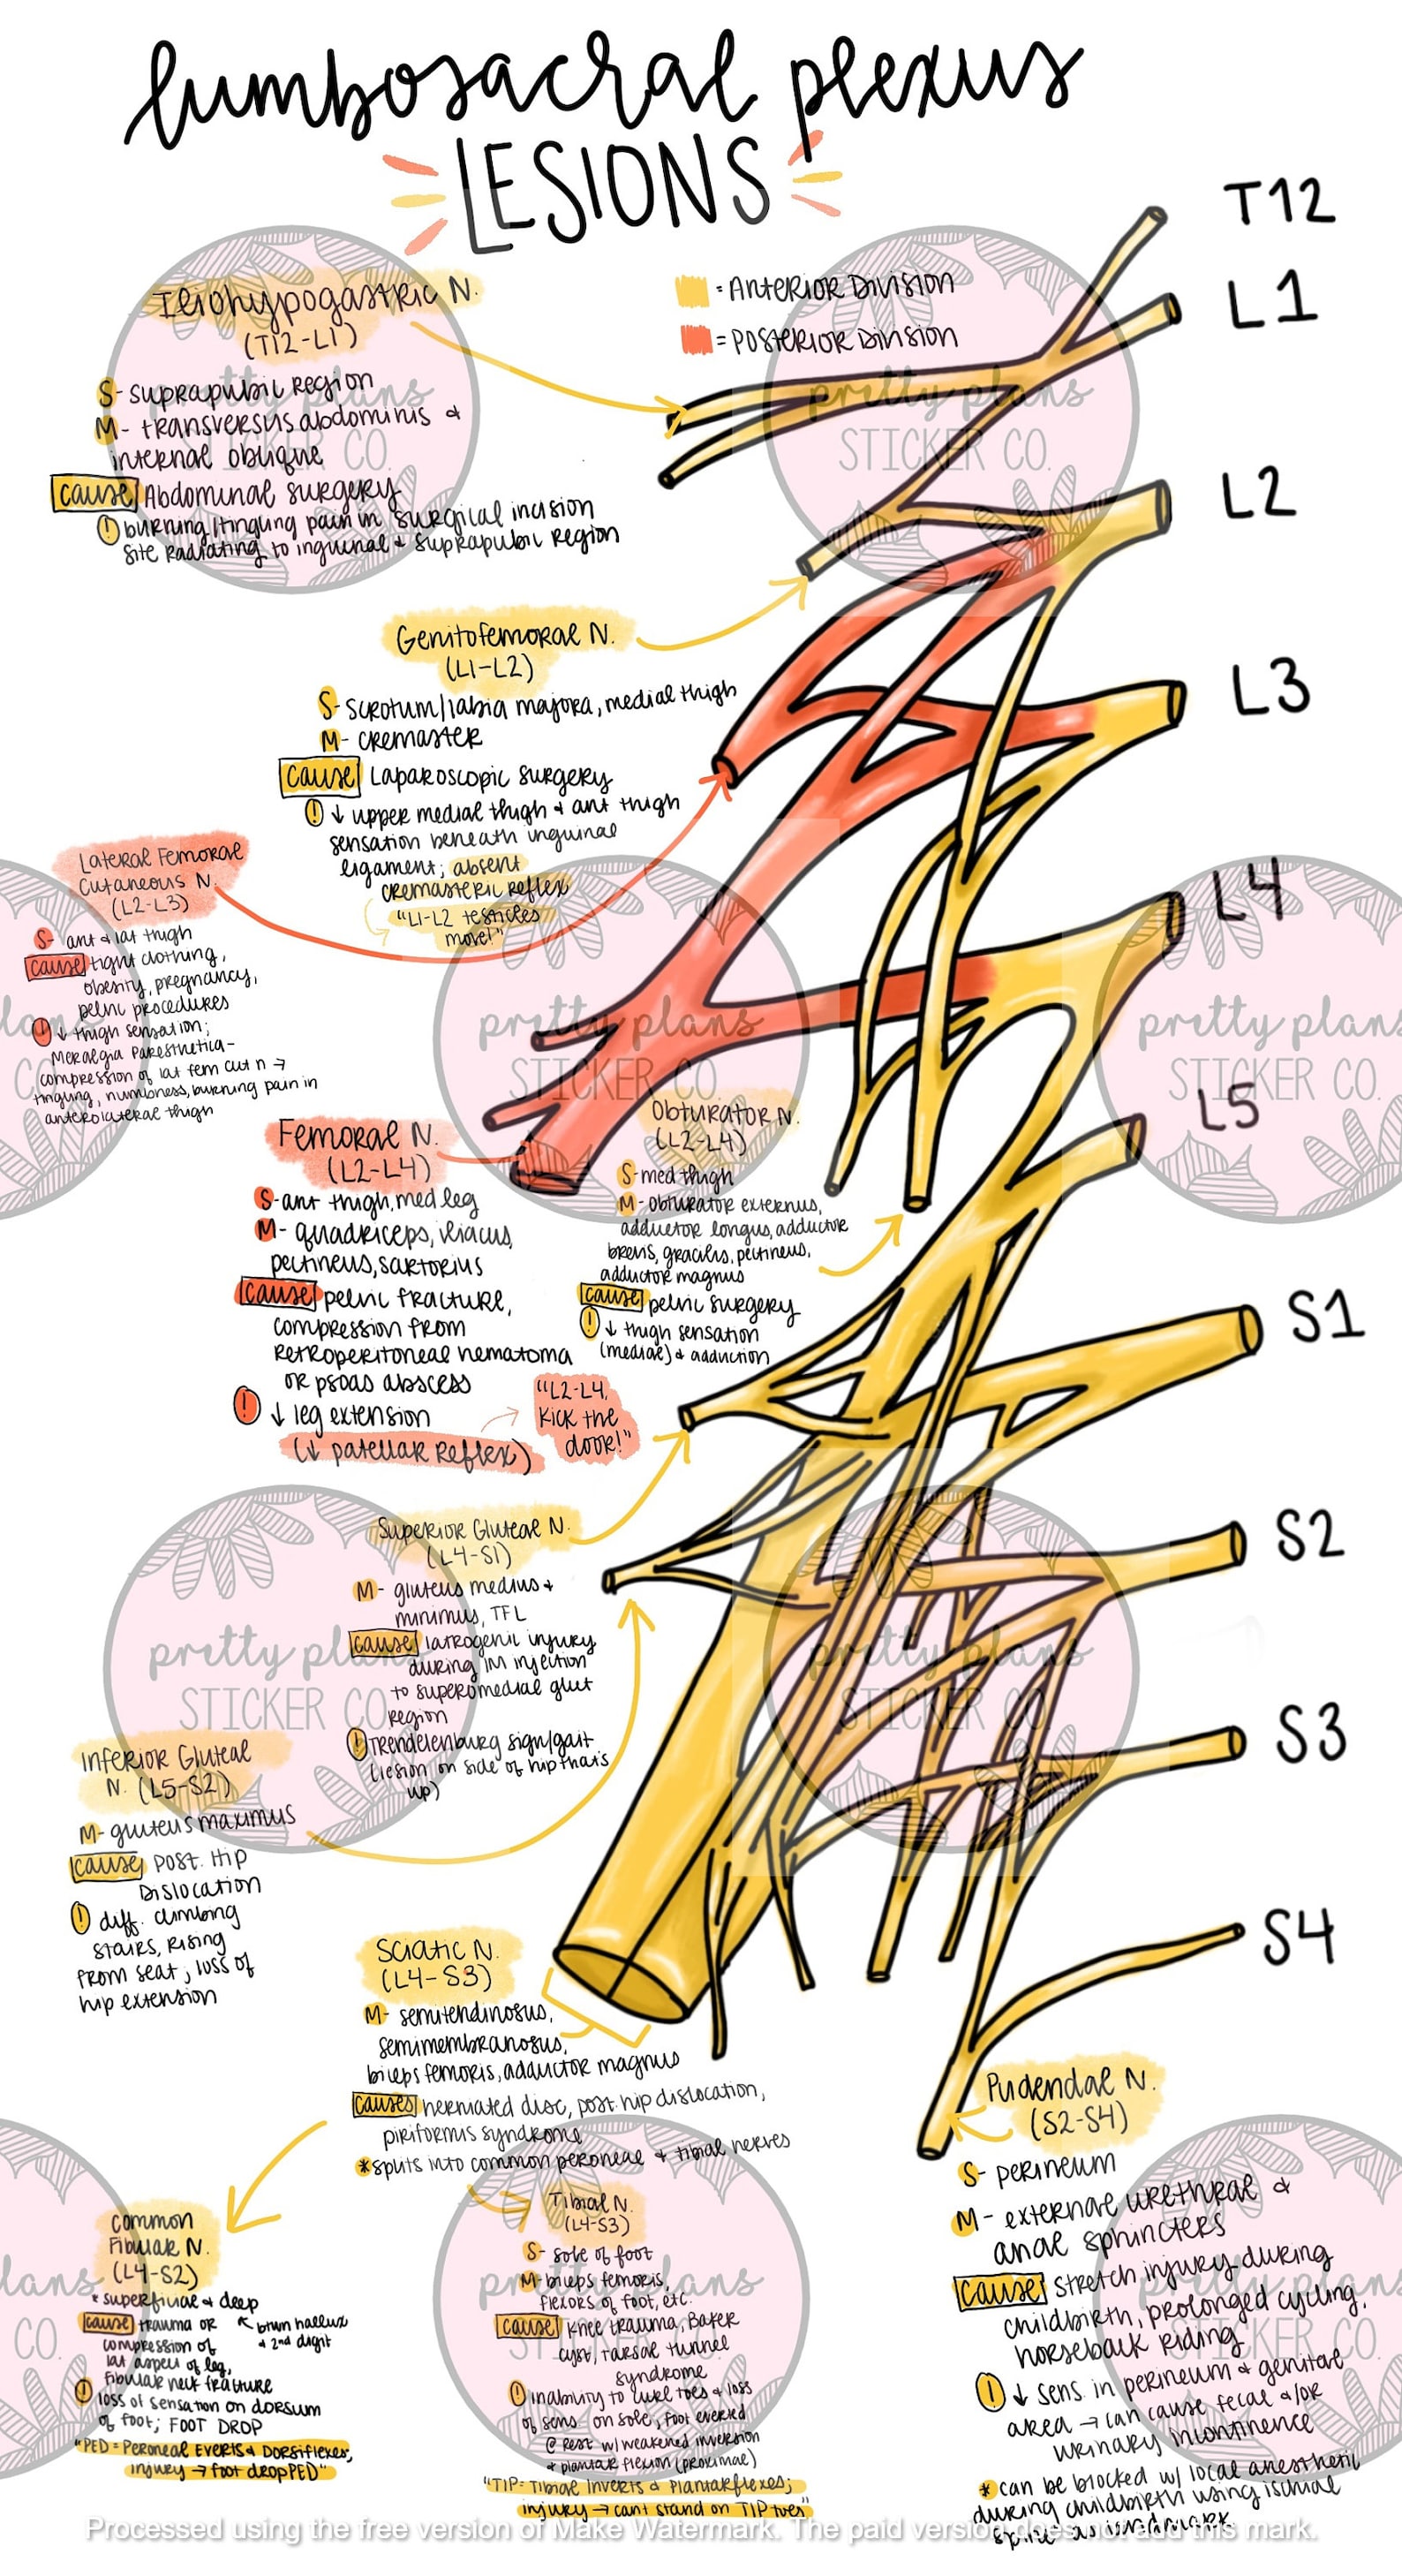 lumbosacral plexus
LESIONS
= Anterior Division
= Posterior Division
T12
L1
L2
L3
L4
L5
S1
S2
S3
S4
Iliohypogastric N.
(T12-L1)
S- suprapubic region
M- transversus abdominis &
internal oblique
cause Abdominal surgery
! burning/tingling pain in surgical incision
site radiating to inguinal & suprapubic region
Genitofemoral N.
(L1-L2)
S- scrotum/labia majora, medial thigh
M- cremaster
cause Laparoscopic surgery
! ↓ upper medial thigh & ant thigh
sensation beneath inguinal
ligament; absent
cremasteric reflex
"L1-L2 testicles
move!"
Lateral Femoral
Cutaneous N.
(L2-L3)
S- ant & lat thigh
cause tight clothing,
obesity, pregnancy,
pelvic procedures
! ↓ thigh sensation;
Meralgia Paresthetica-
compression of lat fem cut n →
tingling, numbness, burning pain in
anterolateral thigh
Femoral N.
(L2-L4)
S- ant thigh, med leg
M- quadriceps, iliacus,
pectineus, sartorius
cause pelvic fracture,
compression from
retroperitoneal hematoma
or psoas abscess
! ↓ leg extension
(↓ patellar reflex)
"L2-L4,
kick the
door!"
Obturator N.
(L2-L4)
S- med thigh
M- obturator externus,
adductor longus, adductor
brevis, gracilis, pectineus,
adductor magnus
cause pelvic surgery
! ↓ thigh sensation
(medial) & adduction
Superior Gluteal N.
(L4-S1)
M- gluteus medius &
minimus, TFL
cause iatrogenic injury
during IM injection
to superomedial glut
region
! Trendelenburg sign/gait
(lesion on side of hip that is
up)
Inferior Gluteal
N. (L5-S2)
M- gluteus maximus
cause Post. Hip
Dislocation
! diff. climbing
stairs, rising
from seat; loss of
hip extension
Sciatic N.
(L4-S3)
M- semitendinosus,
semimembranosus,
biceps femoris, adductor magnus
causes herniated disc, post. hip dislocation,
piriformis syndrome
*splits into common peroneal & tibial nerves
Common
Fibular N.
(L4-S2)
* superficial & deep
↖ btwn hallux
& 2nd digit
cause trauma or
compression of
lat aspect of leg,
fibular neck fracture
! loss of sensation on dorsum
of foot; FOOT DROP
"PED = Peroneal Everts & Dorsiflexes;
injury → foot dropPED"
Tibial N.
(L4-S3)
S- sole of foot
M- biceps femoris,
flexors of foot, etc.
cause Knee trauma, Baker
cyst, tarsal tunnel
syndrome
! inability to curl toes & loss
of sens. on sole; foot everted
@ rest w/ weakened inversion
& plantar flexion (proximal)
"TIP = Tibial Inverts & Plantarflexes;
injury → can't stand on TIPtoes"
Pudendal N.
(S2-S4)
S- perineum
M- external urethral &
anal sphincters
cause stretch injury during
childbirth, prolonged cycling,
horseback riding
! ↓ sens. in perineum & genital
area → can cause fecal &/or
urinary incontinence
* can be blocked w/ local anesthetic
during childbirth using ischial
spine as landmark
pretty plans
STICKER CO.
pretty plans
STICKER CO.
pretty plans
STICKER CO.
pretty plans
STICKER CO.
pretty plans
STICKER CO.
pretty plans
STICKER CO.
pretty plans
STICKER CO.
Processed using the free version of Make Watermark. The paid version does not add this mark.